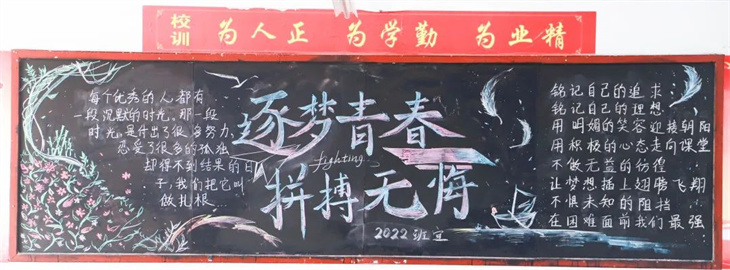 校训
为人正 为学勤 为业精
每个优秀的人都有
一段沉默的时光,那一段
时光,是付出了很多努力,
忍受了很多的孤独
却得不到结果的日
子,我们把它叫
做扎根
逐梦青春
fighting
拼搏无悔
2022班宣
铭记自己的追求
铭记自己的理想
用明媚的笑容迎接朝阳
用积极的心态走向课堂
不做无益的彷徨
让梦想插上翅膀飞翔
不惧未知的阻挡
在困难面前我们最强